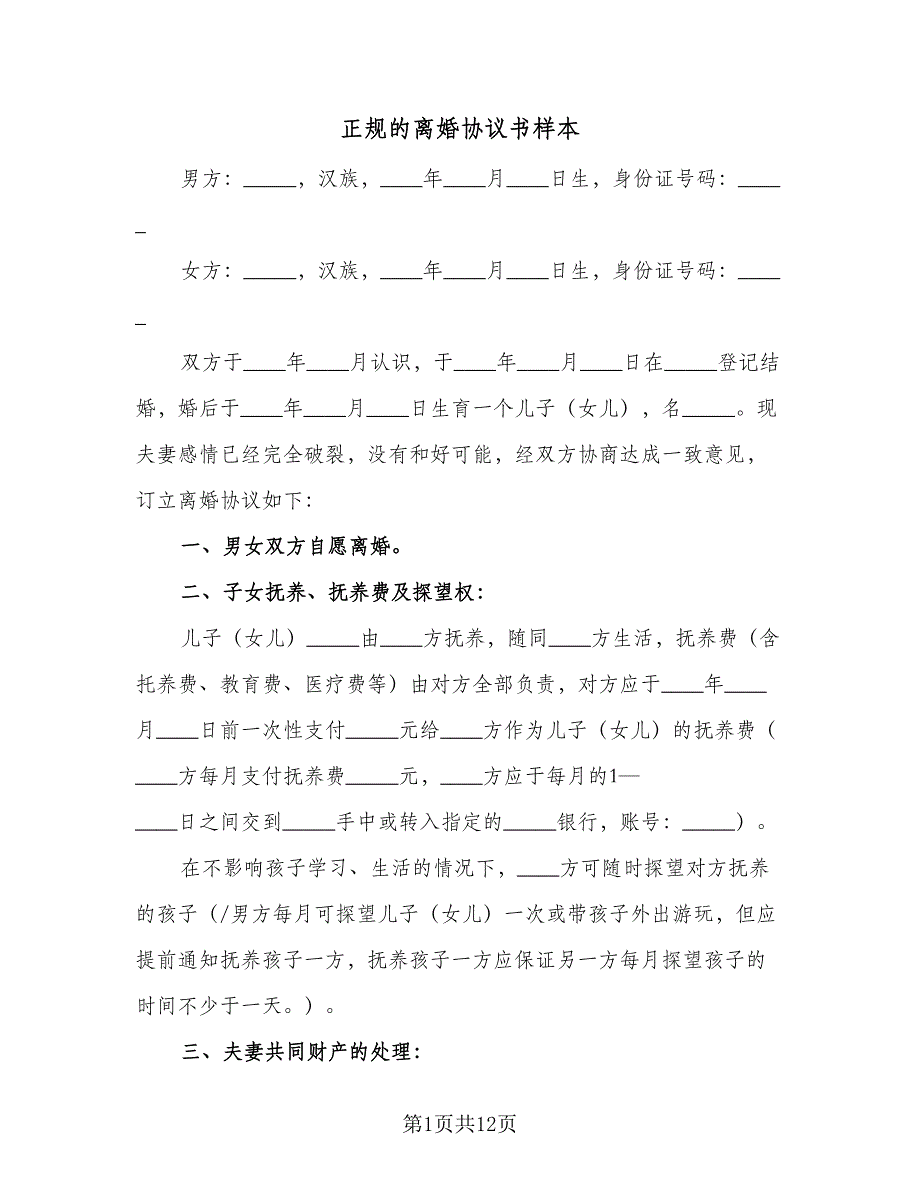 正规的离婚协议书样本
男方：_____，汉族，____年____月____日生，身份证号码：____
_
女方：_____，汉族，____年____月____日生，身份证号码：____
_
双方于____年____月认识，于____年____月____日在_____登记结
婚，婚后于____年____月____日生育一个儿子（女儿），名_____。现
夫妻感情已经完全破裂，没有和好可能，经双方协商达成一致意见，
订立离婚协议如下：
一、男女双方自愿离婚。
二、子女抚养、抚养费及探望权：
儿子（女儿）_____由____方抚养，随同____方生活，抚养费（含
托养费、教育费、医疗费等）由对方全部负责，对方应于____年____
月____日前一次性支付_____元给____方作为儿子（女儿）的抚养费（
____方每月支付抚养费_____元，____方应于每月的1—
____日之间交到_____手中或转入指定的_____银行，账号：_____）。
在不影响孩子学习、生活的情况下，____方可随时探望对方抚养
的孩子（/男方每月可探望儿子（女儿）一次或带孩子外出游玩，但应
提前通知抚养孩子一方，抚养孩子一方应保证另一方每月探望孩子的
时间不少于一天。）。
三、夫妻共同财产的处理：
第1页共12页